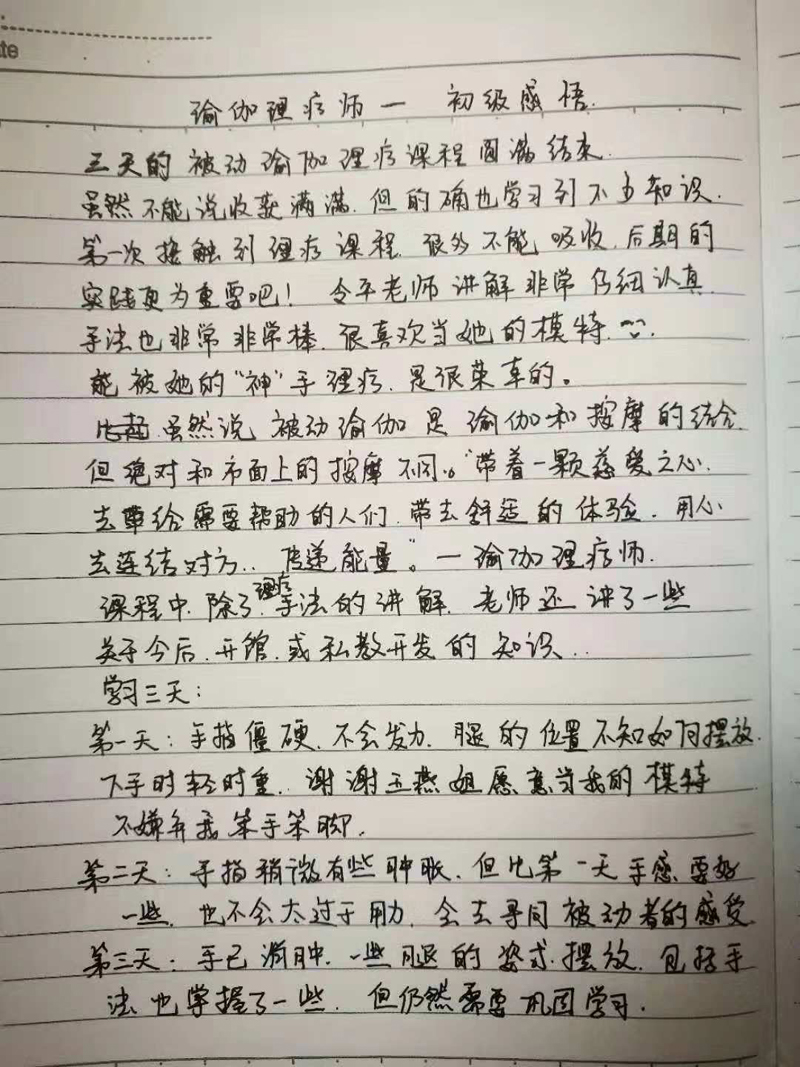 te
瑜伽理疗师一 初级感悟.
三天的被动瑜伽理疗课程圆满结束.
虽然不能说收获满满.但的确也学习到不少知识.
第一次接触到理疗课程.很多不能吸收.后期的
实践更为重要吧！令平老师讲解非常仔细认真.
手法也非常非常棒.很喜欢当她的模特.
能被她的“神”手理疗.是很荣幸的。
虽然说被动瑜伽是瑜伽和按摩的结合.
但绝对和市面上的按摩不同。“带着一颗慈爱之心.
去带给需要帮助的人们.带去舒适的体验.用心
去连结对方..传递能量”。一瑜伽理疗师.
课程中.除了理疗手法的讲解.老师还讲了一些
关于今后.开馆.或私教开发的知识..
学习三天：
第一天：手指僵硬.不会发力.腿的位置不知如何摆放.
下手时轻时重.谢谢王燕姐愿意当我的模特
不嫌弃我笨手笨脚.
第二天：手指稍微有些肿胀.但比第一天手感要好
一些.也不会太过于用力.会去寻问被动者的感受
第三天：手已消肿.一些腿的姿式.摆放.包括手
法也掌握了一些.但仍然需要巩固学习.